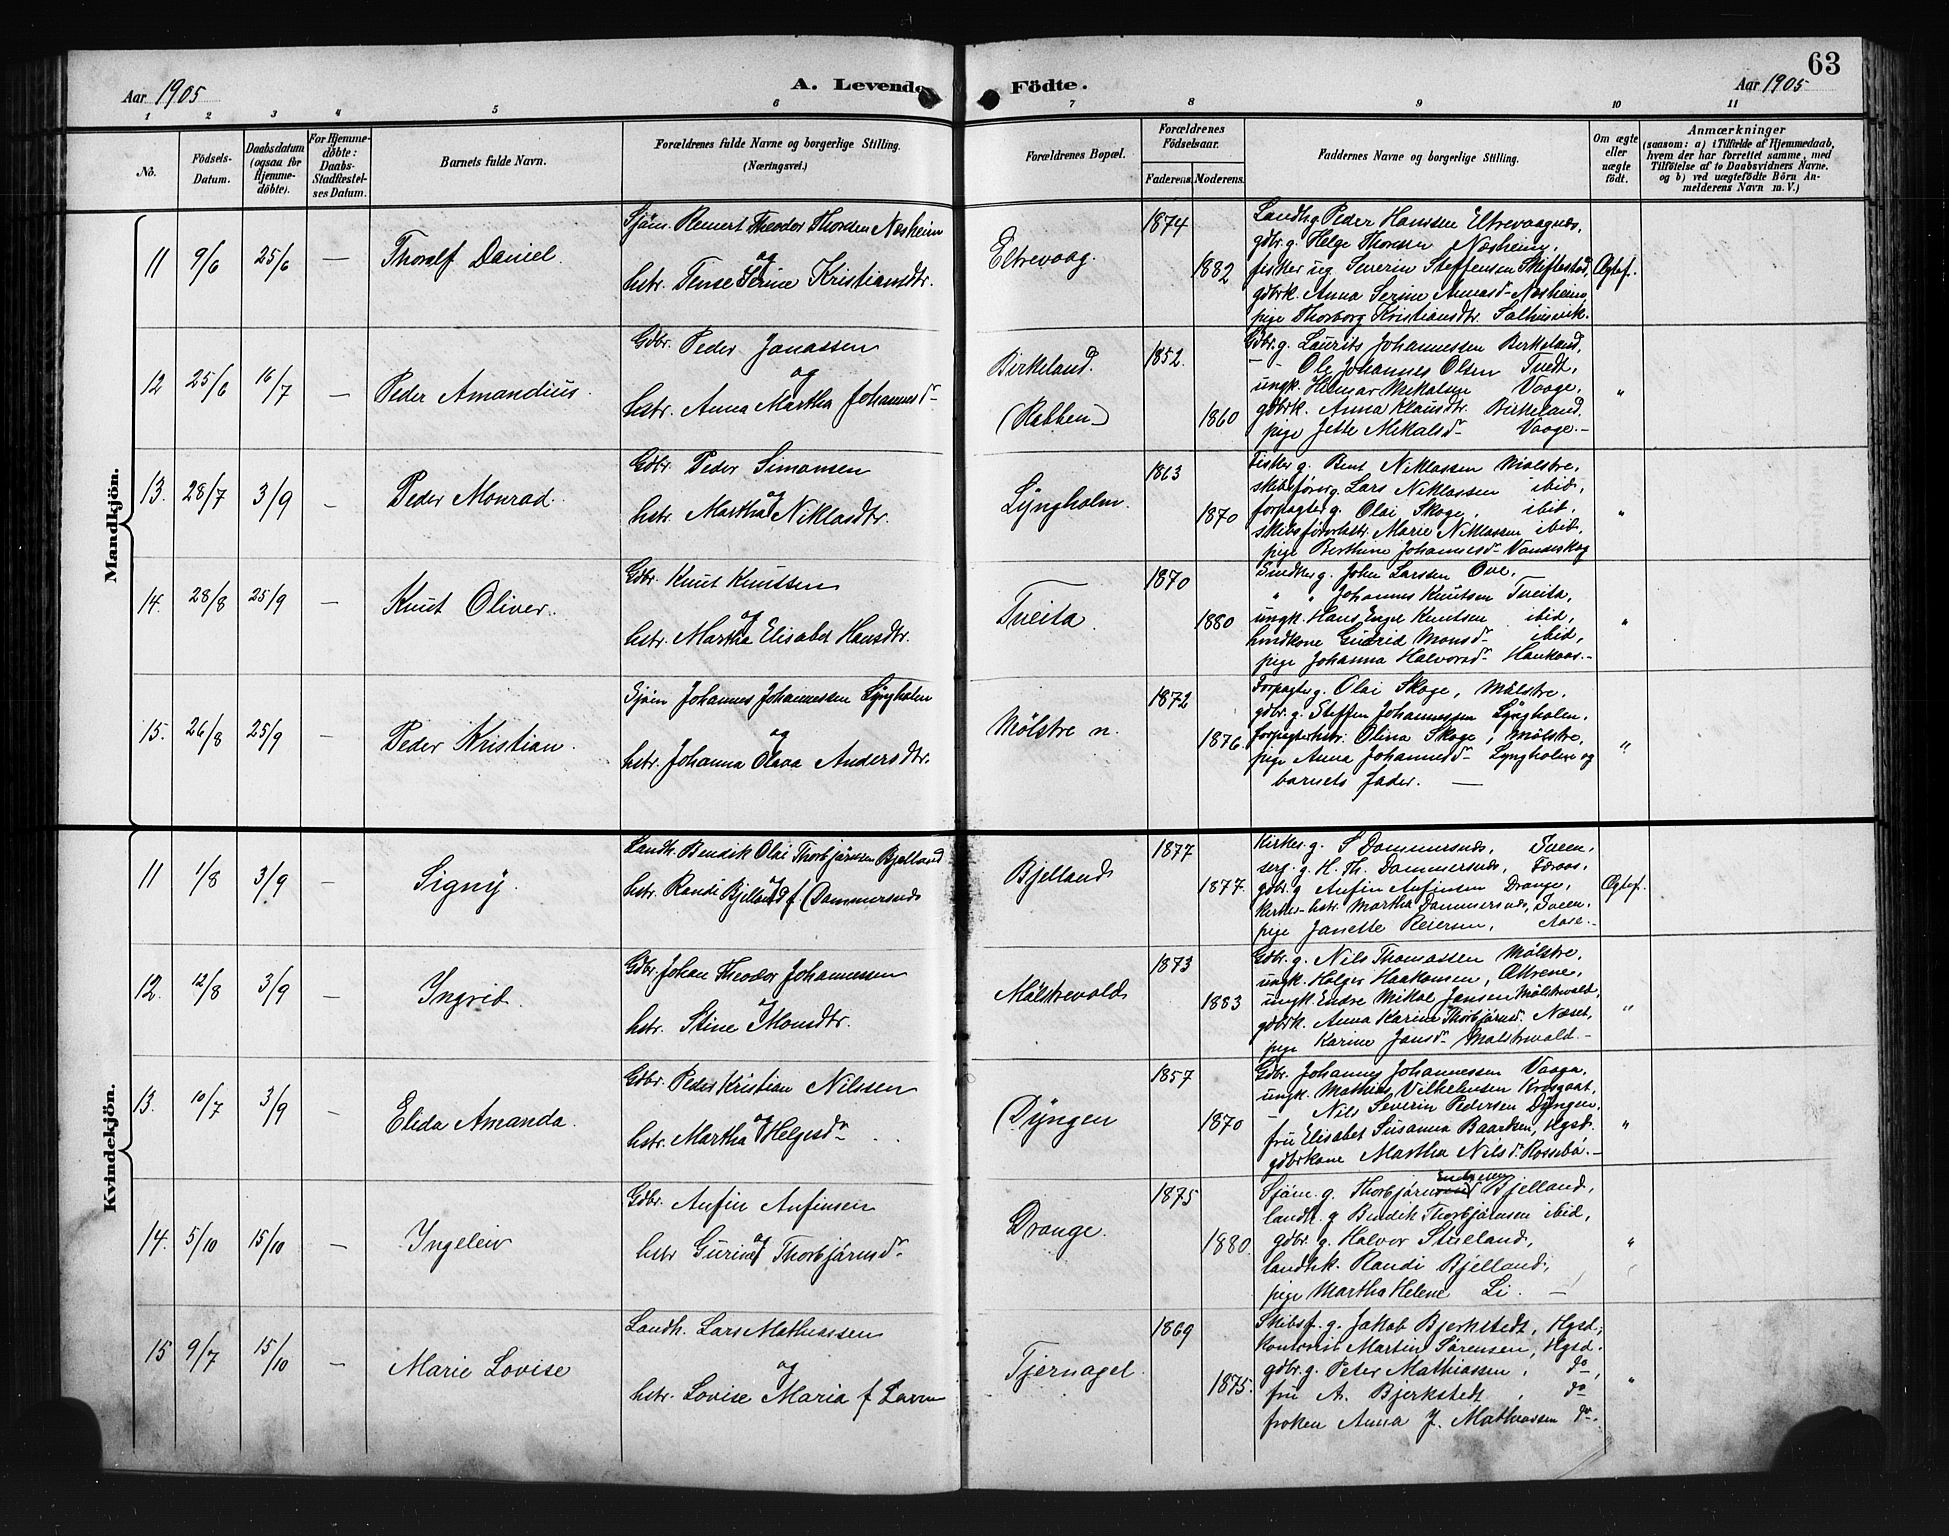 63
Aar 1905 A. Levende Födte. Aar 1905
1 2 3 4 5 6 7 8 9 10 11
No. Födsels-Datum. Daabsdatum (ogsaa for Hjemme-döbte). For Hjemme-döbte: Daabs-Stadfæstel-ses Datum. Barnets fulde Navn. Forældrenes fulde Navne og borgerlige Stilling. (Næringsvei.) Forældrenes Bopæl. Forældrenes Födselsaar. Faderens. Moderens. Faddernes Navne og borgerlige Stilling. Om ægte eller uægte födt. Anmærkninger (saasom: a) i Tilfælde af Hjemmedaab, hvem der har forrettet samme, med Tilföielse af to Daabsvidners Navne. og b) ved uægtefödte Börn An-melderens Navn m. V.)
Mandkjön.
11 9/6 25/6 — Thoralf Daniel.
Sjöm. Remert Theodor Thorsen Næsheim
og
hstr. Tense Serine Kristiansdtr.
Eltrevaag. 1874 1882
Landh. g. Peder Hanssen Eltrevaagnæs,
gdbr. g. Helge Thoressen Næsheim,
fisker ug. Severin Steffensen Skiftestad,
gdbrk. Anna Serine Næsheim,
pige Thorborg Kristiansdtr. Salhusvik.
Ægtef.
12 25/6 16/7 — Peder Amandius.
Gdbr. Peder Jonassen
og
hstr. Anna Martha Johannesdr
Birkeland. (Rabben) 1852. 1860
Gdbr. g. Laurits Johannessen Birkeland,
— Ole Johannes Olsen Tvedt,
ungk. Hilmar Mikalsen Vaage,
gdbrk. Anna Klausdtr. Birkeland,
pige Jette Mikalsdr Vaage.—
"
13. 28/7 3/9 — Peder Monrad.
Gdbr. Peder Simonsen
og
hstr. Martha Niklasdtr.
Lyngholm. 1863 1870
Fisker g. Bent Niklassen Mølstre,
skibsförer g. Lars Niklassen ibid,
forpagter g. Olai Skoge, ibid.
skibsförerhstr. Marie Niklassen ibid.
pige Berthine Johannesdr Vandaskog
"
14. 28/8 25/9 — Knut Oliver.
Gdbr. Knut Knutssen
og
hstr. Martha Elisabet Hansdtr.
Tveita. 1870 1880
g. John Larssen Ove.
" " Johannes Knutsen Tveita,
ungk. Hans Engel Knutsen ibid,
Gudrid Monsdr ibid,
pige Johanna Halvorsdr Haukaas.—
"
15. 26/8 25/9 — Peder Kristian.
Sjöm. Johannes Johannessen Lyngholm
og
hstr. Johanna Olava Andersdtr.
Mölstre n. 1872 1876.
Forpagter g. Olai Skoge, Mölstre,
gdbr. g. Steffen Johannessen Lyngholm,
forpagterhstr. Olina Skoge, Mölstre,
pige Anna Johannesdr Lyngholm og
barnets fader. —
"
Kvindekjön.
11 1/8 3/9 — Signy.
Landh. Bendik Olai Thorbjörnsen Bjelland
og
hstr. Randi Bjelland f. Dommersnæs
Bjelland 1877 1877.
Kirkes. g. S Dommersnæs, Tveen,
serg. g. H. Th. Dommersnæs, Færaas,
gdbr. g. Anfin Anfinsen Drange,
Kirkes-hstr. Martha Dommersnæs, Tveen,
pige Janette Reiersen, Aase.—
Ægtef.
12. 12/8 3/9 — Ingrid.
Gdbr. Johan Theodor Johannessen
og
hstr. Stine Monsdtr.
Mölstrevold 1873 1883
Gdbr. g. Nils Thomassen Mølstre,
ungk. Holger Haakonsen,
ungk. Endre Mikal Jansen Mölstrevold,
gdbrk. Anna Karina Thorbjörnsd. Næset,
pige Karine Jansdr Mölstrevold.—
"
13. 10/7 3/9 — Elida Amanda.
Gdbr. Peder Kristian Nilssen
og
hstr. Martha Helgesdr
Dyngen 1857 1870
Gdbr. Johannes Johannessen Vaage,
ungk. Mathias Vilhelmsen
— Nils Severin Pedersen Dyngen,
fru Elisabet Susanna Baardsen, Hgsd.
gdbrkone Martha Nilsdr Rossebö.—
"
14. 5/10 15/10 — Ingeleiv
Gdbr. Anfin Anfinsen
og
hstr. Gurine Thorbjörnsdr
Drange. 1875 1880.
Sjöm. g. Thorbjörn Bjelland,
landh. g. Bendik Thorbjörnsen ibid,
gdbr. g. Halvor Stueland,
landhk. Randi Bjelland,
pige Martha Helene Li. —
"
15 9/7 15/10 — Marie Lovise
Landh. Lars Mathiassen
og
hstr. Lovise Maria f.
Tjernagel. 1869 1875.
Skibsf. g. Jakob Bjerkstedt, Hgsd.,
Kontorist Martin Sörensen, Hgsd.
gdbr. g. Peter Mathiassen, do,
fru A. Bjerkstedt, do
fröken Anna J. Mathiassen do.
"